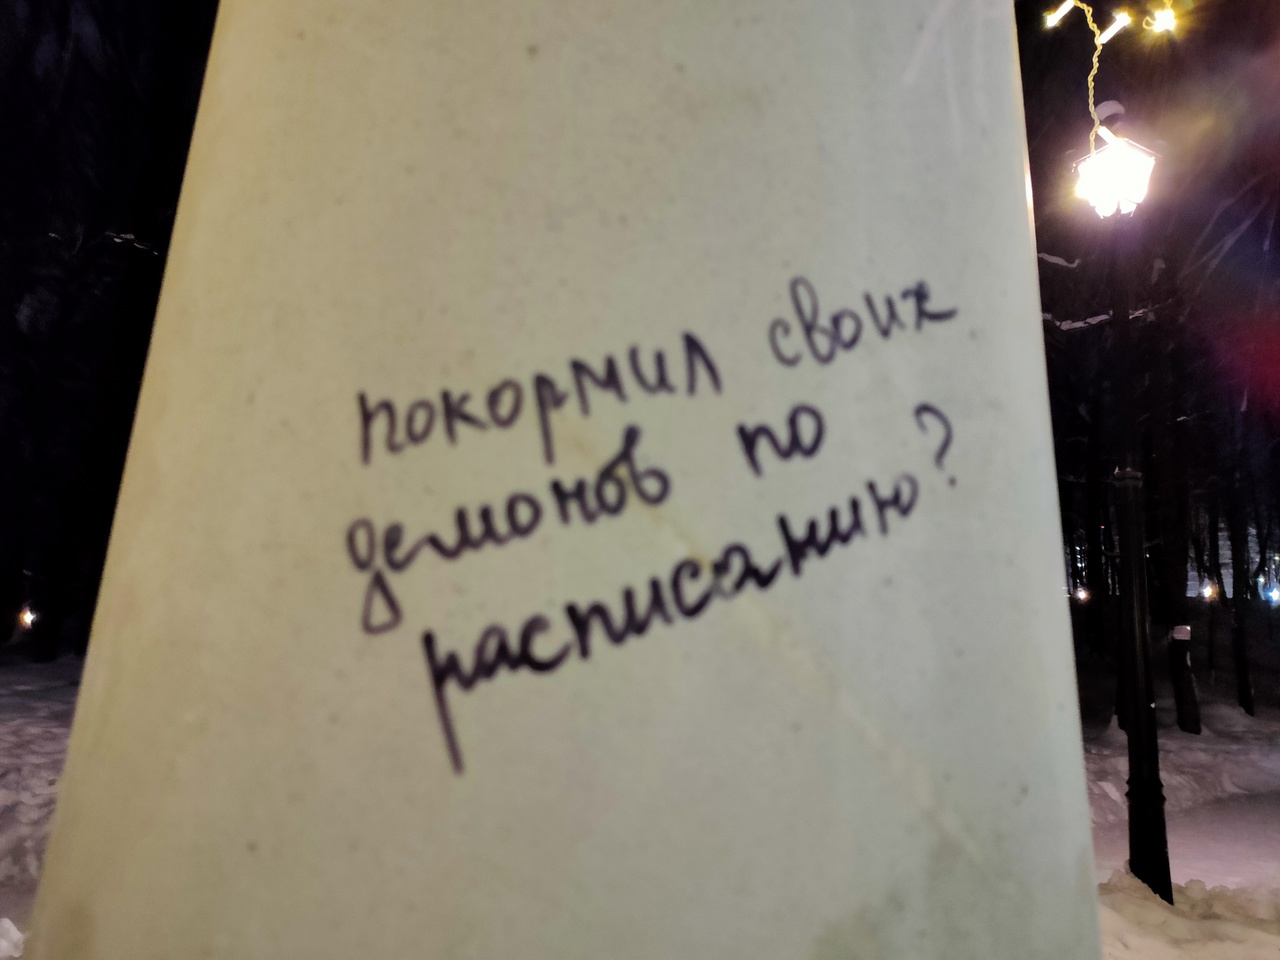 покормил своих
демонов по
расписанию?